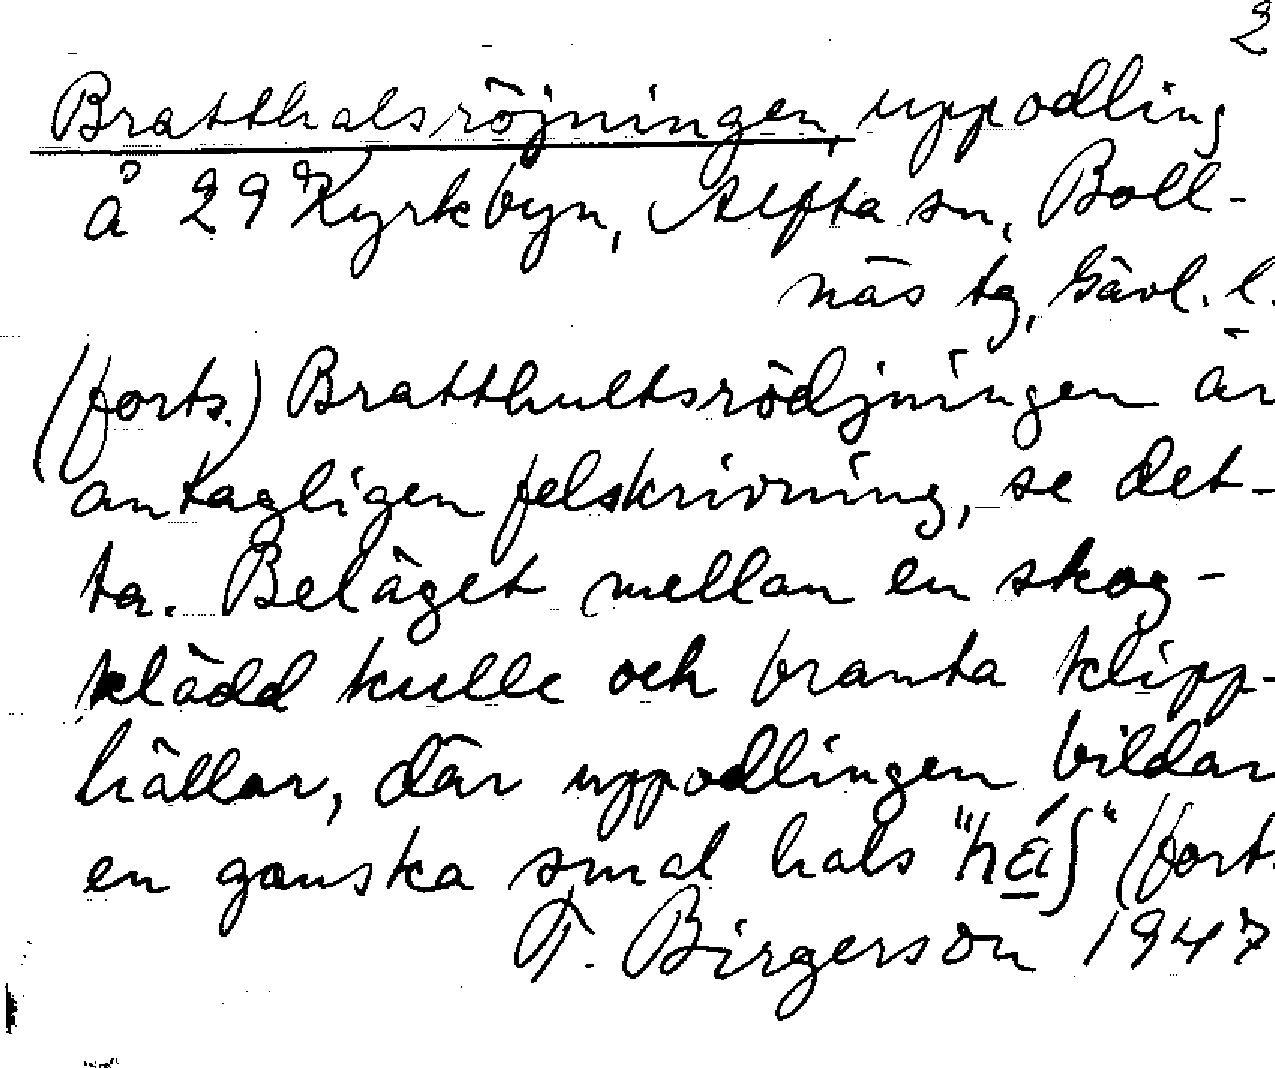 2
Bratthalsröjningen, uppodling
å 29 Kyrkbyn, Alfta sn, Boll-
näs tg, Gävl. l.
(forts.) Bratthultsrödjningen är
antagligen felskrivning, se det-
ta. Beläget mellan en skog-
klädd kulle och branta klipp-
hällar, där uppodlingen bildar
en ganska smal hals (fort.
T. Birgerson 1947